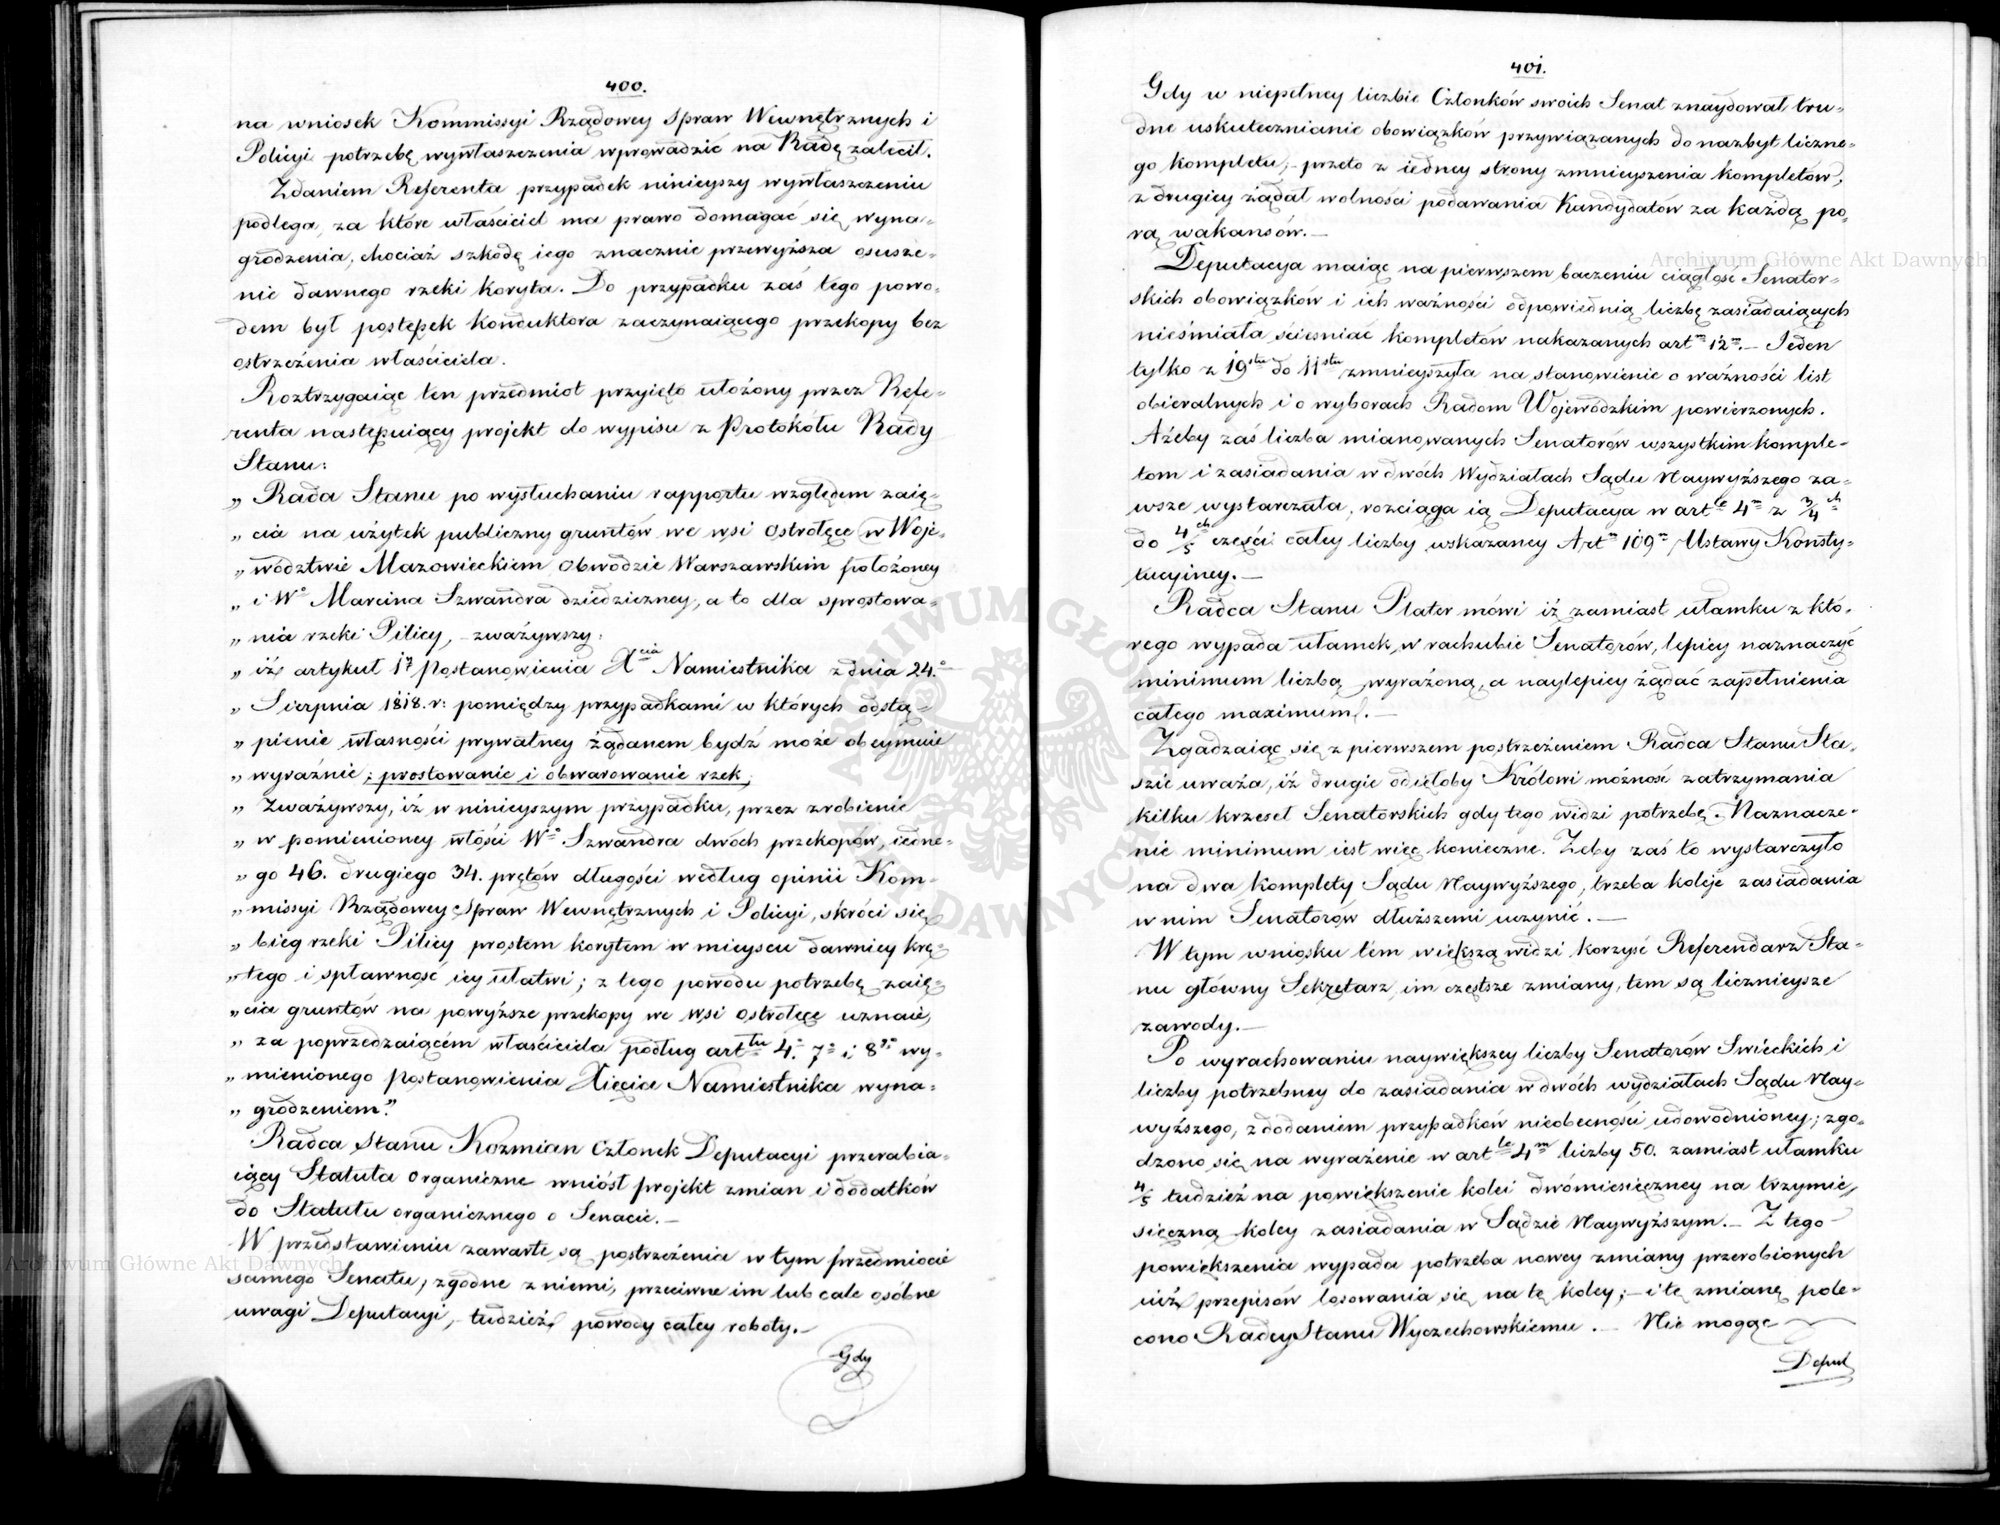 400.
na wniosek Kommissyi Rządowey Spraw Wewnętrznych i
Policyi potrzebę wywłaszczenia wprowadzić na Radę zalecił.
Zdaniem Referenta przypadek ninieyszy wywłaszczeniu
podlega, za które właściciel ma prawo domagać się wyna-
grodzenia, chociaż szkodę iego znacznie przewyższa osusze-
nie dawnego rzeki koryta. Do przypadku zaś tego powo-
dem był postępek Konduktora zaczynaiącego przekopy bez
ostrzeżenia właściciela.
Roztrzygaiąc ten przedmiot przyięto ułożony przez Refe-
renta następuiący projekt do wypisu z Protokółu Rady
Stanu:
„ Rada Stanu po wysłuchaniu rapportu względem zaię-
„ cia na użytek publiczny gruntów we wsi Ostrołęce w Woje-
„ wództwie Mazowieckiem Obwodzie Warszawskim położoney
„ i Wo Marcina Szwandra dziedziczney, a to dla sprostowa-
„ nia rzeki Pilicy, – zważywszy:
„ iż artykuł 17 Postanowienia Xcia Namiestnika z dnia 24o
„ Sierpnia 1818. r: pomiędzy przypadkami w których odstą-
„ pienie własności prywatney żądanem bydź może obeymuie
„ wyraźnie; prostowanie i obwarowanie rzek;
„ Zważywszy, iż w ninieyszym przypadku, przez zrobienie
„ w pomienioney włości Wo Szwandra dwóch przekopów, iedne-
„ go 46. drugiego 34. prętów długości według opinii Kom-
„ missyi Rządowey Spraw Wewnętrznych i Policyi, skróci się
„ bieg rzeki Pilicy prostem korytem w mieyscu dawniey krę-
„ tego i spławność iey ułatwi; z tego powodu potrzebę zaię-
„ cia gruntów na powyższe przekopy we wsi Ostrołęce uznaie,
„ za poprzedzaiącém właściciela podług arttu 4o 7o i 8go wy-
„ mienionego Postanowienia Xięcia Namiestnika wyna-
„ grodzeniem."
Radca Stanu Kozmian Członek Deputacyi przerabia-
iącey Statuta organiczne wniósł projekt zmian i dodatków
do Statutu organicznego o Senacie. –
W przedstawieniu zawarte są postrzeżenia w tym przedmiocie
samego Senatu, zgodne z niemi, przeciwne im lub całe osóbne
uwagi Deputacyi, – tudzież powody całey roboty. –
Gdy
401.
Gdy w niepełney liczbie Członków swoich Senat znaydował tru-
dne uskutecznianie obowiązków przywiązanych do nazbyt liczne-
go kompletu, – przeto z iedney strony zmnieyszenia kompletów,
z drugiey żądał wolności podawania Kandydatów za każdą po-
rą wakansów. –
Deputacya maiąc na pierwszem baczeniu ciągłość Senator-
skich obowiązków i ich ważności odpowiednią liczbę zasiadaiących
nieśmiała ścieśniać kompletów nakazanych artm 12m. – Jeden
tylko z 19stu do 11stu zmnieyszyła na stanowienie o ważności list
obieralnych i o wyborach Radom Wojewódzkim powierzonych.
Ażeby zaś liczba mianowanych Senatorów wszystkim komple-
tom i zasiadania w dwóch Wydziałach Sądu Naywyższego za-
wsze wystarczała, rozciąga ią Deputacya w artle 4m z 3/4ch
do 4/5ch części całey liczby wskazaney Artm 109m Ustawy Konsty-
tucyiney. –
Radca Stanu Plater mówi iż zamiast ułamku z któ-
rego wypada ułamek w rachubie Senatorów, lepiey naznaczyć
minimum liczbą wyrażoną, a naylepiey żądać zapełnienia
całego maximum. –
Zgadzaiąc się z pierwszem postrzeżeniem Radca Stanu Sta-
szic uważa, iż drugie odięłoby Królowi możność zatrzymania
kilku krzeseł Senatorskich gdy tego widzi potrzebę. Naznacze-
nie minimum iest więc konieczne. Żeby zaś to wystarczyło
na dwa komplety Sądu Naywyższego, trzeba koleje zasiadania
w nim Senatorów dłuższemi uczynić. –
W tym wniosku tém większą widzi korzyść Referendarz Sta-
nu główny Sekretarz, im częstsze zmiany, tem są licznieysze
zawody. –
Po wyrachowaniu naywiększey liczby Senatorów Swieckich i
liczby potrzebney do zasiadania w dwóch wydziałach Sądu Nay-
wyższego, z dodaniem przypadków nieobecności udowodnioney; zgo-
dzono się na wyrażenie w artle 4m liczby 50. zamiast ułamku
4/5 tudzież na powiększenie kolei dwómiesięczney na trzymie-
sięczną koley zasiadania w Sądzie Naywyższym. – Z tego
powiększenia wypada potrzeba nowey zmiany przerobionych
iuż przepisów losowania się na tę koley; – i tę zmianę pole-
cono Radcy Stanu Wyczechowskiemu. – Nie mogąc
Deput
Archiwum Główne Akt Dawnych
Archiwum Główne Akt Dawnych
ARCHIWUM GŁÓWNE AKT DAWNYCH